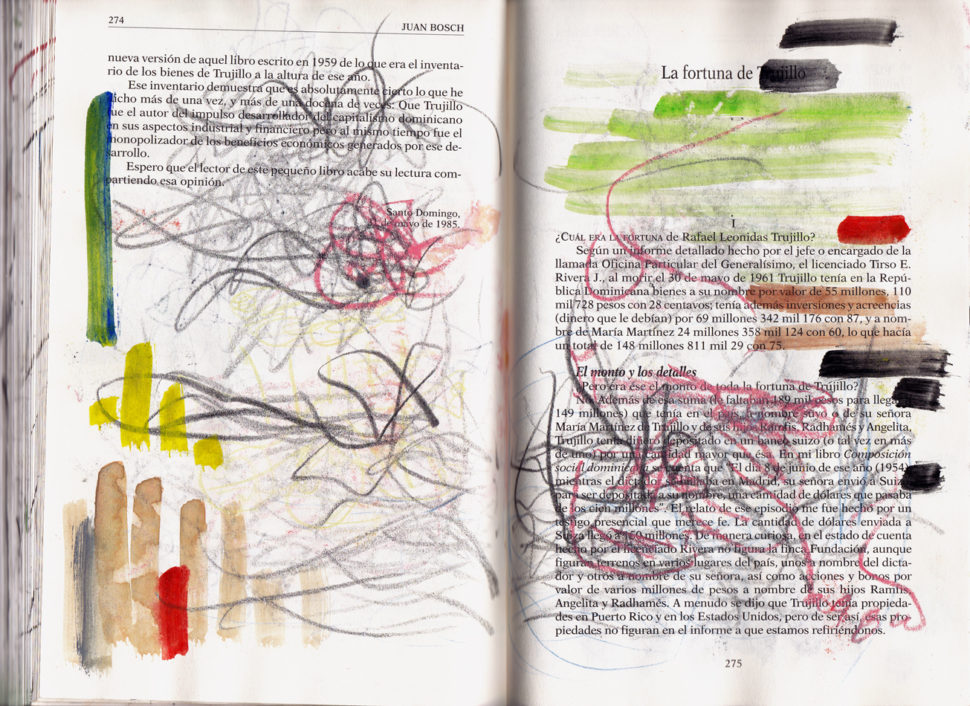 274
JUAN BOSCH
nueva versión de aquel libro escrito en 1959 de lo que era el inventa-
rio de los bienes de Trujillo a la altura de ese año.
Ese inventario demuestra que es absolutamente cierto lo que he
dicho más de una vez, y más de una docena de veces: Que Trujillo
fue el autor del impulso desarrollador del capitalismo dominicano
en sus aspectos industrial y financiero pero al mismo tiempo fue el
monopolizador de los beneficios económicos generados por ese de-
sarrollo.
Espero que el lector de este pequeño libro acabe su lectura com-
partiendo esa opinión.
Santo Domingo,
de mayo de 1985.
La fortuna de Trujillo
I
¿CUÁL ERA LA FORTUNA de Rafael Leonidas Trujillo?
Según un informe detallado hecho por el jefe o encargado de la
llamada Oficina Particular del Generalísimo, el licenciado Tirso E.
Rivera J., al morir el 30 de mayo de 1961 Trujillo tenía en la Repú-
blica Dominicana bienes a su nombre por valor de 55 millones, 110
mil 728 pesos con 28 centavos; tenía además inversiones y acreencias
(dinero que le debían) por 69 millones 342 mil 176 con 87, y a nom-
bre de María Martínez 24 millones 358 mil 124 con 60, lo que hacía
un total de 148 millones 811 mil 29 con 75.
El monto y los detalles
¿Pero era ése el monto de toda la fortuna de Trujillo?
No. Además de esa suma (le faltaban 189 mil pesos para llegar a
149 millones) que tenía en el país a nombre suyo o de su señora
María Martínez de Trujillo y de sus hijos Ramfis, Radhamés y Angelita,
Trujillo tenía dinero depositado en un banco suizo (o tal vez en más
de uno) por una cantidad mayor que ésa. En mi libro Composición
social dominicana se cuenta que "El día 8 de junio de ese año (1954),
mientras el dictador se hallaba en Madrid, su señora envió a Suiza
para ser depositada a su nombre, una cantidad de dólares que pasaba
de los cien millones". El relato de ese episodio me fue hecho por un
testigo presencial que merece fe. La cantidad de dólares enviada a
Suiza llegó a 150 millones. De manera curiosa, en el estado de cuenta
hecho por el licenciado Rivera no figura la finca Fundación, aunque
figuran terrenos en varios lugares del país, unos a nombre del dicta-
dor y otros a nombre de su señora, así como acciones y bonos por
valor de varios millones de pesos a nombre de sus hijos Ramfis,
Angelita y Radhamés. A menudo se dijo que Trujillo tenía propieda-
des en Puerto Rico y en los Estados Unidos, pero de ser así, esas pro-
piedades no figuran en el informe a que estamos refiriéndonos.
275